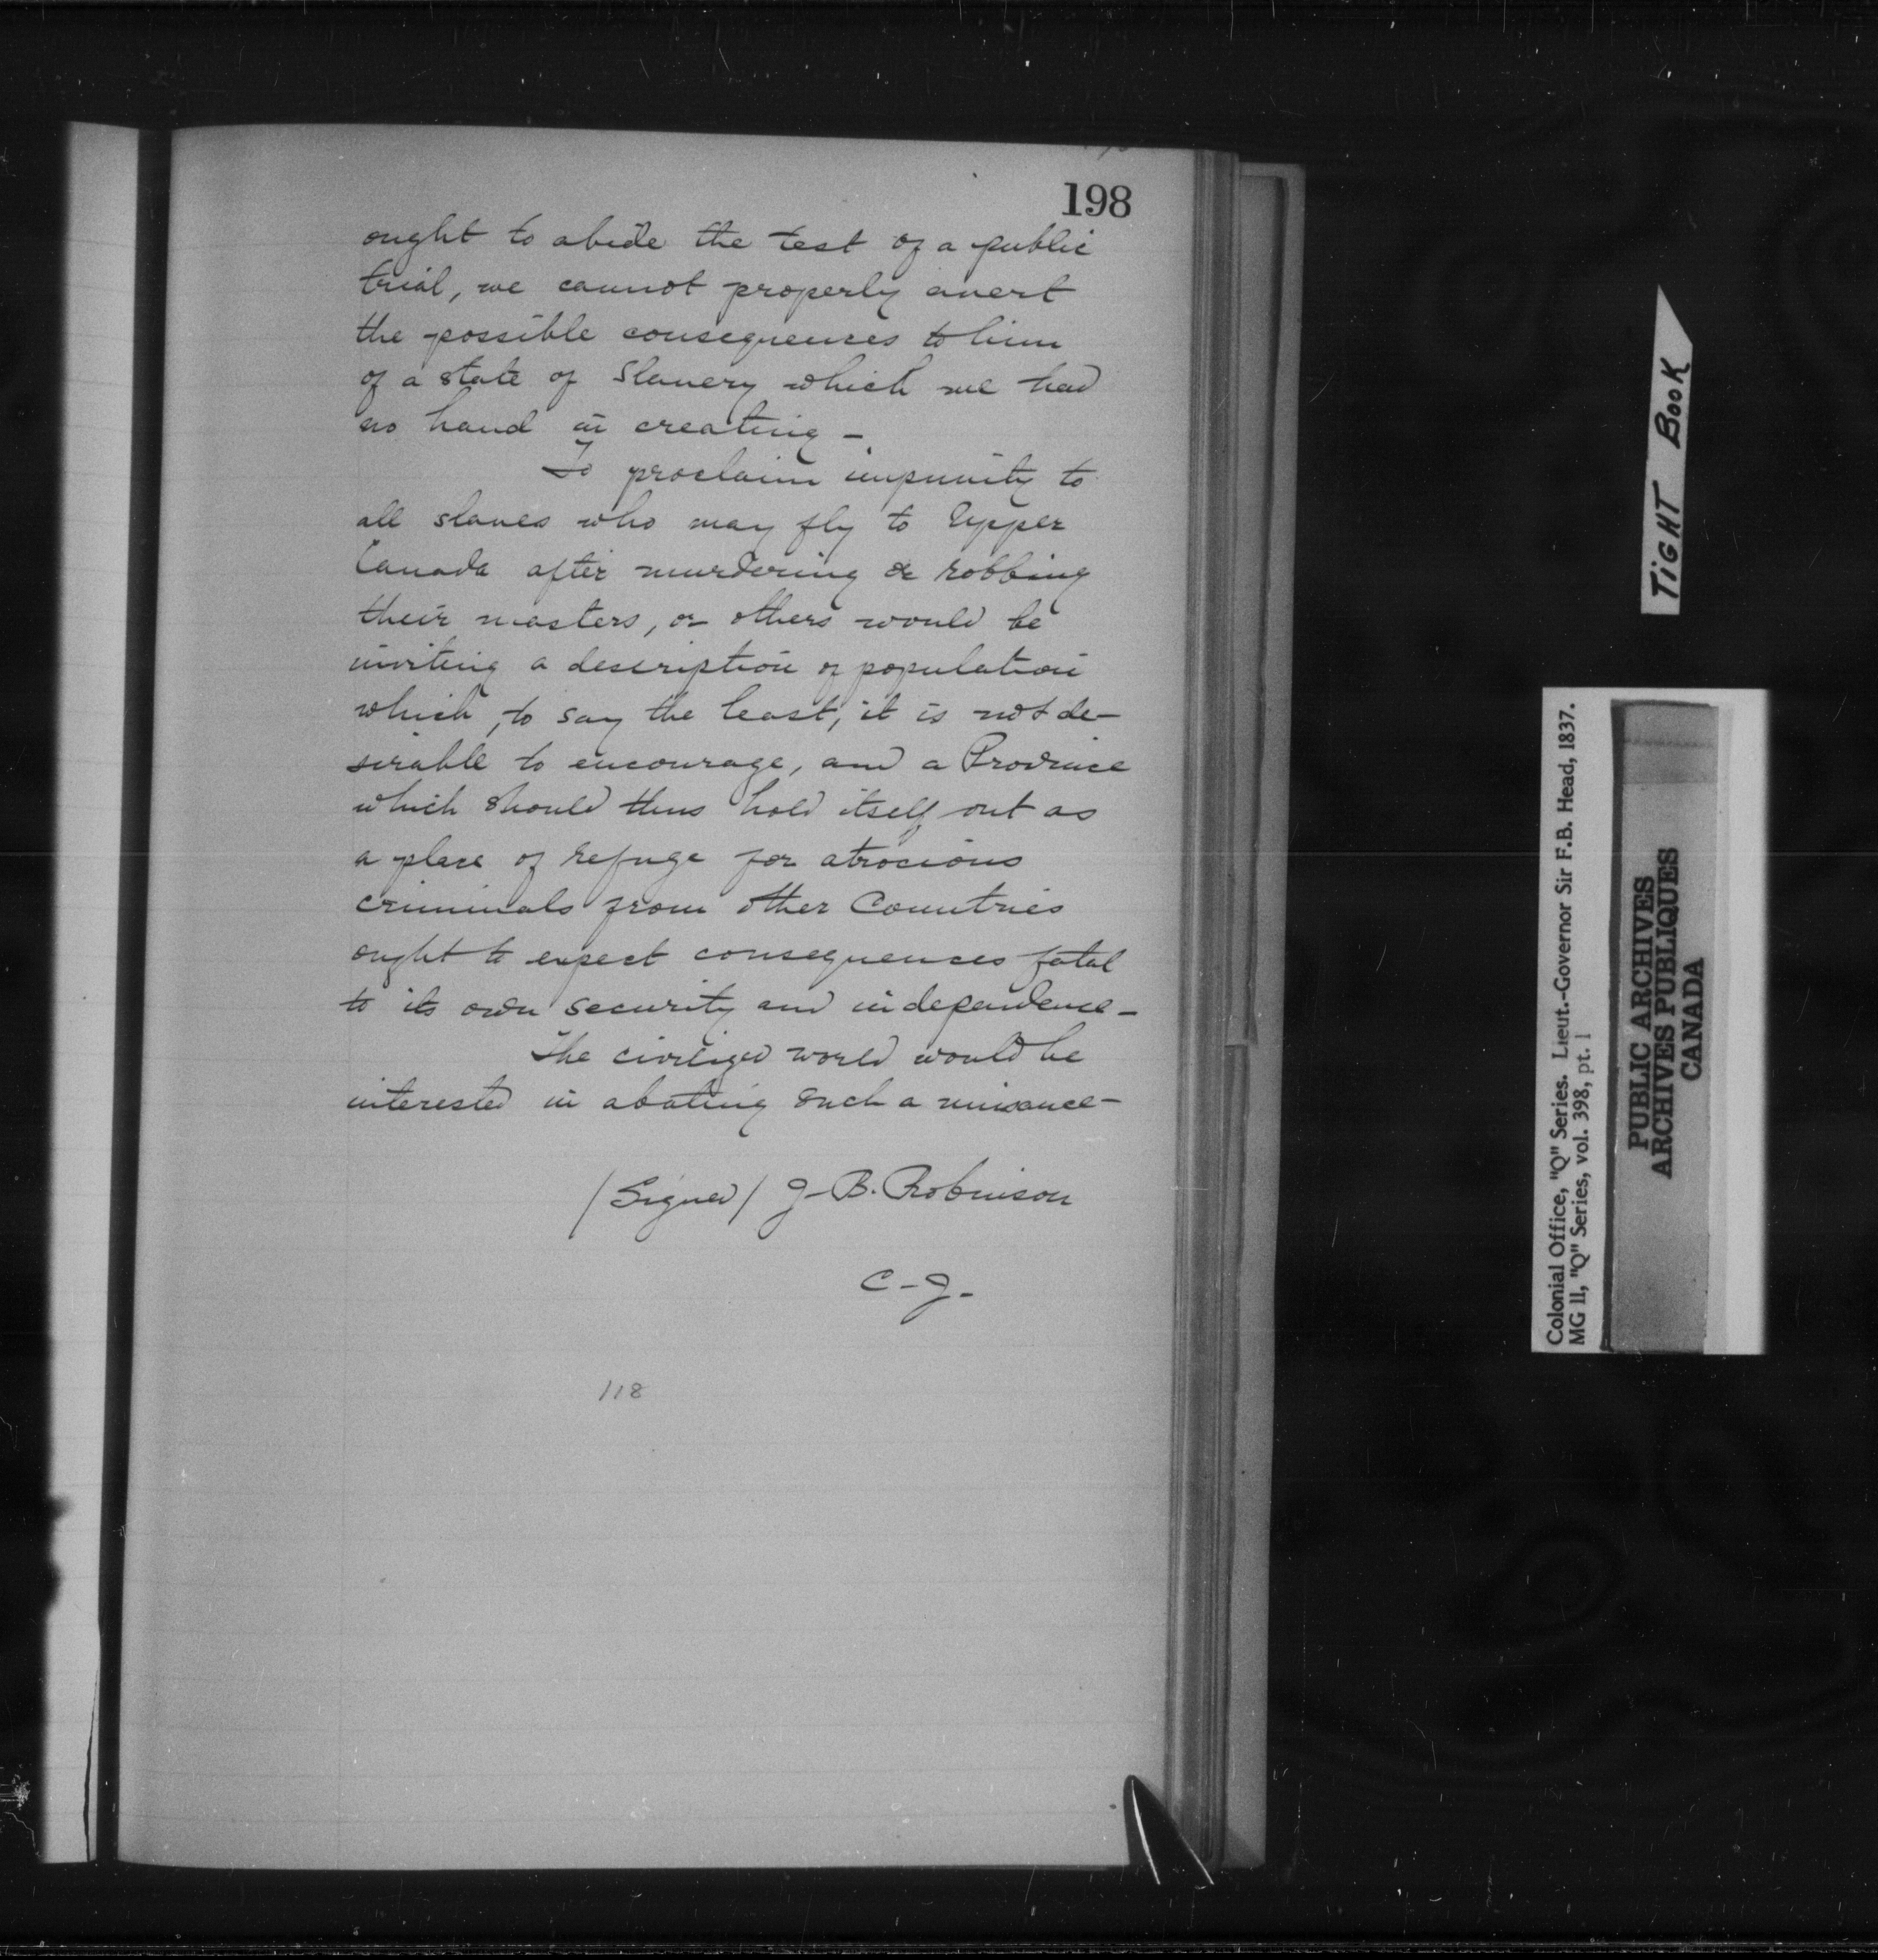 198
ought to abide the test of a public
trial, we cannot properly avert
the possible consequences to him
of a state of Slavery which we had
no hand in creating -
To proclaim impunity to
all slaves who may fly to Upper
Canada after murdering or robbing
their masters, or others would be
inviting a description of population
which, to say the least, it is not de-
sirable to encourage, and a Province
which should thus hold itself out as
a place of refuge for atrocious
criminals from other Countries
ought to expect consequences fatal
to its own security and independence -
The civilized world would be
interested in abating such a nuisance -
/Signed/ J. B. Robinson
C. J.
118
TIGHT BOOK
Colonial Office, "Q" Series. Lieut.-Governor Sir F.B. Head, 1837.
MG 11, "Q" Series, vol. 398, pt. 1
PUBLIC ARCHIVES
ARCHIVES PUBLIQUES
CANADA